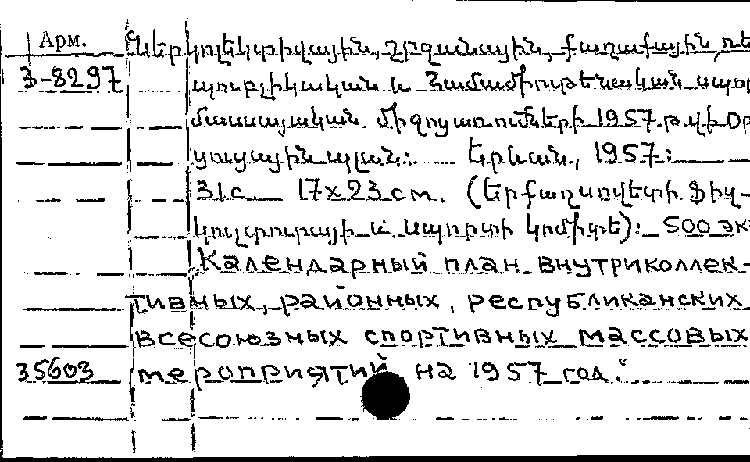 Арм. Ներկոլեկտիվային, շրջանային, քաղաքային, ռես
3-8297 պուբլիկական և համամիութենական սպոր
մասսայական միջոցառումների 1957 թ.վի օր
ցուցային պլան: Երևան, 1957:
31с 17x23 см. (Երքաղսովետի Ֆիզ-
կուլտուրայի և սպորտի կոմիտե): 500 эк
Календарный план внутриколлек-
тивных, районных, республиканских
всесоюзных спортивных массовых
35603 мероприятий на 1957 год.